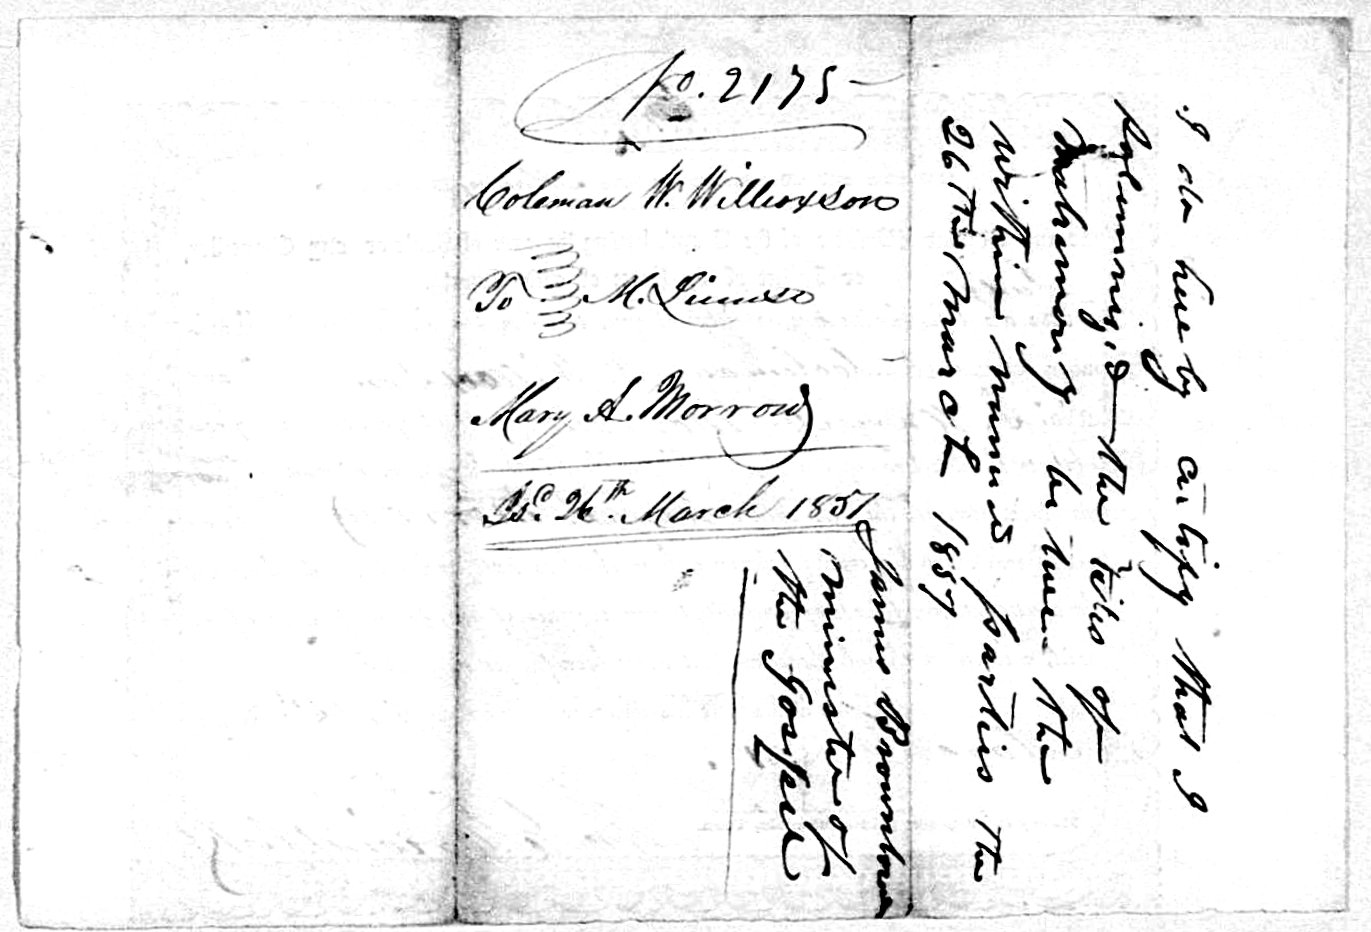 No. 2175
Coleman W. Willcoxson
To M. License
Mary A. Morrow
Isd. 26th. March 1857
I do hereby certify that I
Solemnis,d the rites of
Matrimony between the
within named parties the
26 the March 1857
James Brownlow
minister of
the Gospel